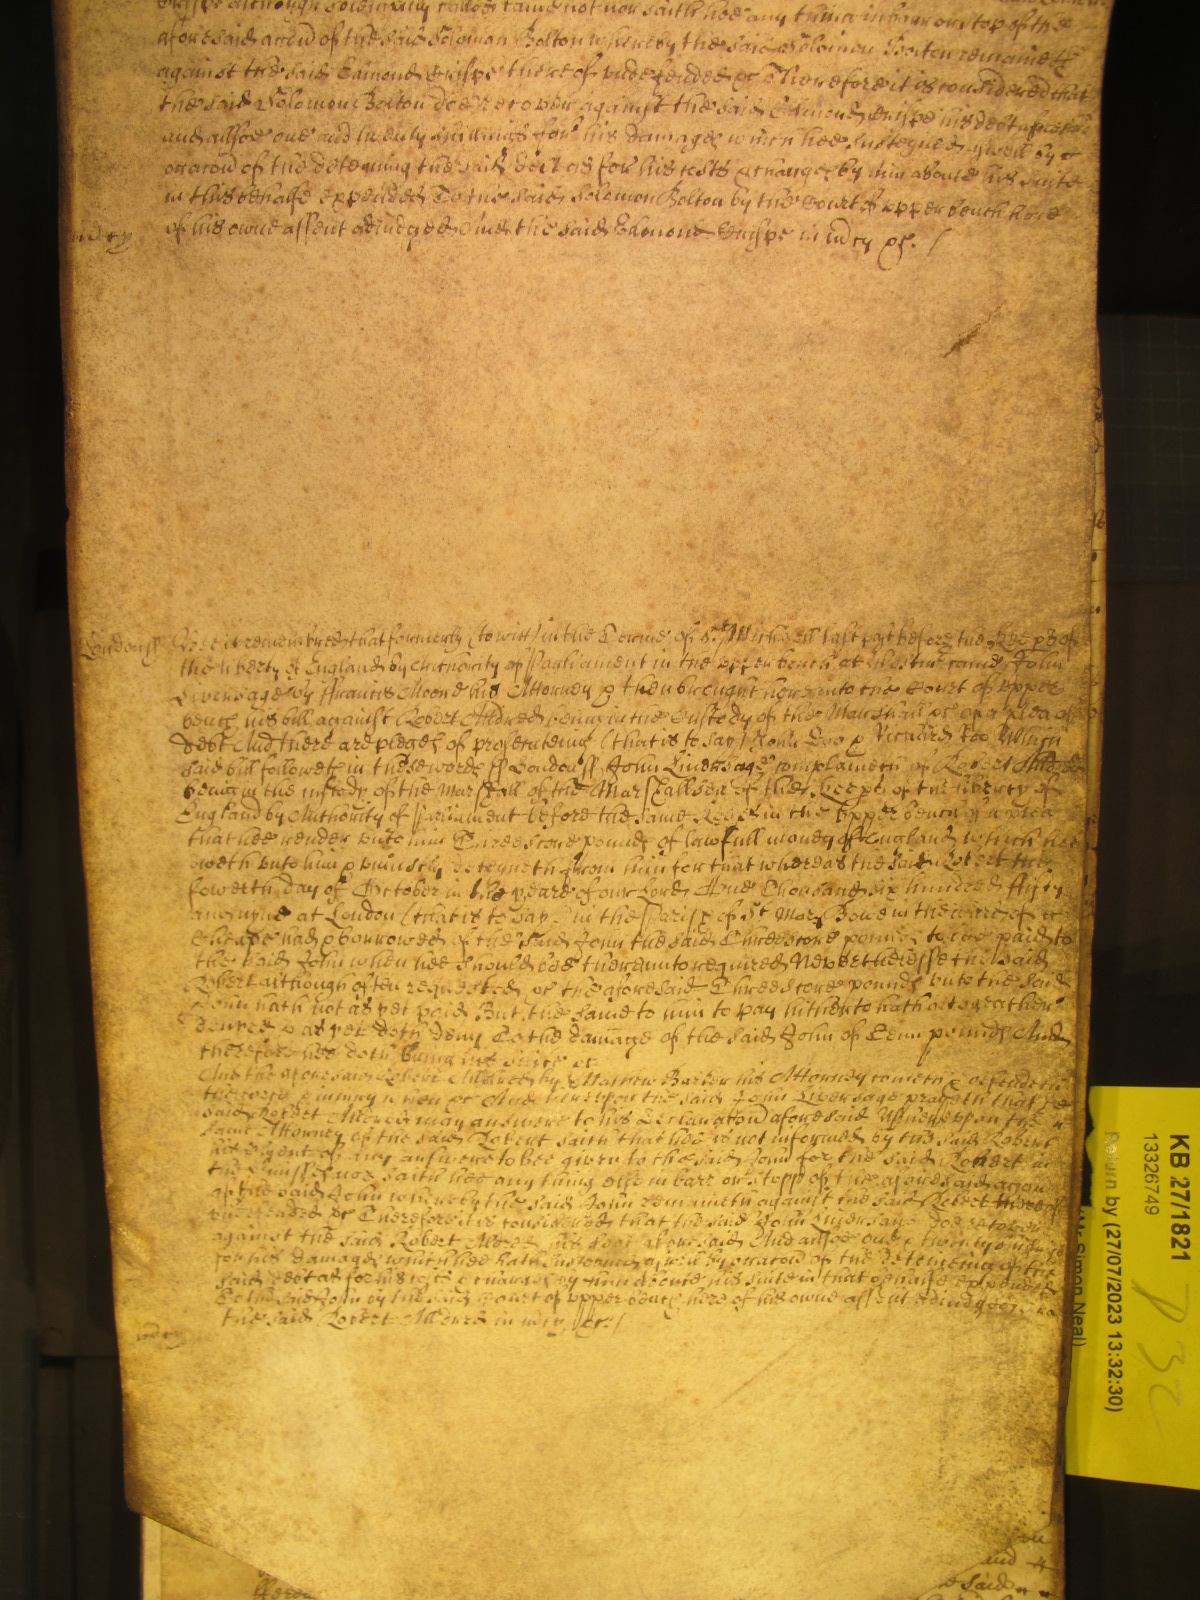 Crispe although solemnly called came not nor saith hee any thing in barr or stop of the
aforesaid accon of the said Solomon Bolton whereby the said Solomon Bolton remaineth
against the said Edmond Crispe thereof undefended &c Therefore it is considered that
the said Solomon Bolton doe recover against the said Edmond Crispe his debt aforesaid
and allsoe one and twenty shillings for his damages which hee susteyned aswell by
occacon of the deteyning the said debt as for his costs & charges by him about his suite
in this behalfe expended To the said Solomon Bolton by the Court of upper bench here
of his owne assent adiudged And the said Edmond Crispe in mcy &c. /
mcy
London ss Bee it remembred that formerly (to witt) in the Terme of St Michaell last past before the Keepers of
the liberty of England by Authority of Parliament in the upper bench at Westmr came John
Liversage by Francis Moore his Attorney & then brought here into the Court of upper
bench his bill against Robert Alldred being in the Custody of the Marshall &c of a plea of
debt And there are pledges of prosecuteing (that is to say) John Doo & Richard Roo Which
said bill followeth in these words ss London ss John Liversage complaineth of Robert Alldred
being in the custody of the Marshall of the Marshallsea of the Keeprs of the liberty of
England by Authority of Parliament before the same Keeprs in the upper bench of a plea
that hee render unto him Threescore pounds of lawfull money of England which hee
oweth unto him & uniustly deteyneth from him for that whereas the said Robert the
fowerth day of October in the yeare of our Lord One Thousand six hundred fifty
and nyne at London (that is to say) in the Parish of St Mary Bowe in the ward of
Cheape had & borrowed of the said John the said Threescore pounds to bee paid to
the said John when hee should bee thereunto required Neverthelesse the said
Robert although often requested &c the aforesaid Threescore pounds unto the said
John hath not as yet paid But the same to him to pay hitherto hath altogeather
denyed & as yet doth deny To the damage of the said John of Tenn pounds And
therefore hee doth bring his suite &c
And the aforesaid Robert Alldred by Mathew Barker his Attorney cometh & defendeth
the force & iniury when &c And hereupon the said John Liversage prayeth that the
said Robert Alldred may answere to his Declaracon aforesaid Whereupon the
same Attorney of the said Robert saith that hee is not informed by the said Robert
his Clyent of any answere to bee given to the said John for the said Robert in
the premisses nor saith hee any thing else in barr or stopp of the aforesaid accon
of the said John whereby the said John remaineth against the said Robert thereof
undefended &c Therefore it is considered that the said John Liversage doe recover
against the said Robert Alldred his debt aforesaid And allsoe one & twenty shillings
for his damages which hee hath susteyned aswell by occacon of the deteineing of the
said debt as for his costs & charges by him about his suite in that behalfe expended
To the said John by the said Court of upper bench here of his owne assent adiudged And
the said Robert Alldred in mcy &c. /
mcy
KB 27/1821
13326749
Return by (27/07/2023 13:32:30)
Mr Simon Neal)
P 32
and
said